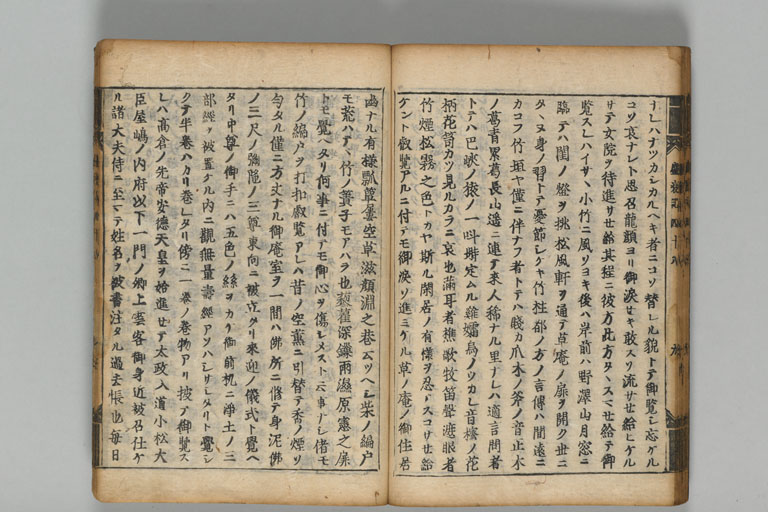 ナレハナツカシカルヘキ者ニコソ替シル貌トテ御覧シ忘ケル
コソ哀ナレト思召龍顔ヨリ御涙セキ敢ス流サセ給ヒケル
サテ女院ヲ待進サセ給其程ニ彼方此方タヽスマセ給テ御
覧スレハイサヽ小竹ニ風ソヨキ後ハ岸前ハ野澤山月窓ニ
臨テハ閨ノ燈ヲ挑松風軒ヲ通テ草庵ノ扉ヲ開ク世ニ
タヽヌ身ノ習トテ憂節シケキ竹柱都ノ方ノ言傳ハ間遠ニ
カコフ竹垣ヤ僅ニ伴ナフ者トテハ賤カ爪木ノ斧ノ音正木
ノ葛青累葛長山遥ニ連テ来人稀ナル里ナレハ適言問者
トテハ巴峡ノ猿ノ一叫時定ムル雞孀烏ノウカレ音樒ノ花
柄花筒カツ見ルカラニ哀也滿耳者樵歌牧笛聲遮眼者
竹煙松霧之色トカヤ斯ル閑居ノ有様ヲ忍ハスコサセ給
ケント叡覧アルニ付テモ御涙ソ進ミケル草ノ庵ノ御住居
幽ナル有様瓢箪屡空草滋顔淵之巷云ツヘシ柴ノ編戸
モ荒ハテヽ竹ノ簀子モアハラ也藜藋深鏁雨濕原憲之扉
トモ覺ヘタリ何事ニ付テモ御心ヲ傷シメスト云事ナシ偖モ
竹ノ編戸ヲ打扣叡覧アレハ昔ノ空薫ニ引替テ香ノ煙ソ
匂タル僅ニ方丈ナル御庵室ヲ一間ハ佛所ニ修テ身泥佛
ノ三尺ノ彌陀ノ三尊東向ニ被立タリ来迎ノ儀式ト覺ヘ
タリ中尊ノ御手ニハ五色ノ絲ヲカケ御前机ニ浄土ノ三
部經ヲ被置タル内ニ觀無量壽經アソハシサシタリト覺シ
クテ半巻ハカリ巻レタリ傍ニ一巻ノ巻物アリ披テ御覧ス
レハ高倉ノ先帝安徳天皇ヲ始進セテ太政入道小松大
臣屋嶋ノ内府以下一門ノ卿上雲客御身近被召仕ケ
ル諸大夫侍ニ至マテ姓名ヲ被書注タル過去帳也毎日